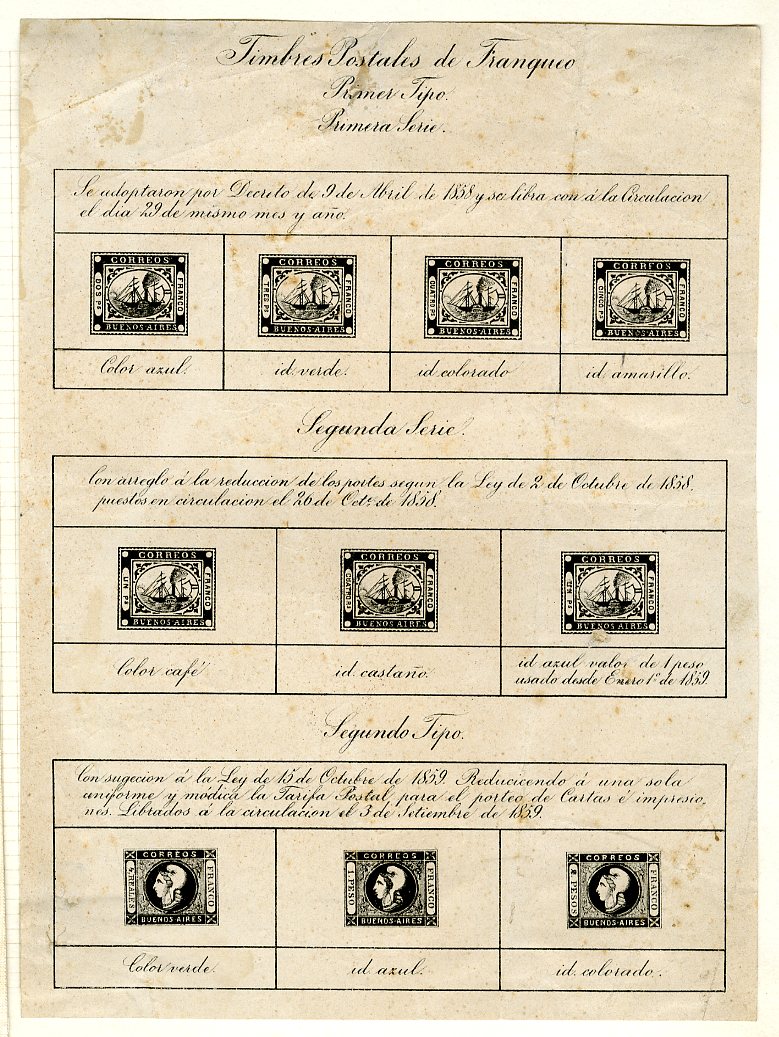 Timbres Postales de Franqueo
Primer Tipo.
Primera Serie.
Se adoptaron por Decreto de 9 de Abril de 1858 y se libra con á la Circulacion
el dia 29 de mismo mes y año.
CORREOS
DOS PS
FRANCO
BUENOS AIRES
CORREOS
TRES PS
FRANCO
BUENOS AIRES
CORREOS
CUATRO PS
FRANCO
BUENOS AIRES
CORREOS
CINCO PS
FRANCO
BUENOS AIRES
Color azul.
id verde.
id colorado
id amarillo.
Segunda Serie.
Con arreglo á la reduccion de los portes segun la Ley de 2 de Octubre de 1858,
puestos en circulacion el 26 de Octe. de 1858.
CORREOS
UN PS
FRANCO
BUENOS AIRES
CORREOS
CUATRO RS
FRANCO
BUENOS AIRES
CORREOS
UN PS
FRANCO
BUENOS AIRES
Color café
id castaño.
id azul valor de 1 peso
usado desde Enero 1º de 1859.
Segundo Tipo.
Con sugecion á la Ley de 15 de Octubre de 1859. Reducicendo á una sola
uniforme y módica la Tarifa Postal, para el porteo de Cartas é impresio-
nes. Librados á la circulacion el 3 de Setiembre de 1859.
CORREOS
4 REALES
FRANCO
BUENOS-AIRES
CORREOS
1 PESO
FRANCO
BUENOS-AIRES
CORREOS
2 PESOS
FRANCO
BUENOS-AIRES
Color verde.
id azul.
id colorado.